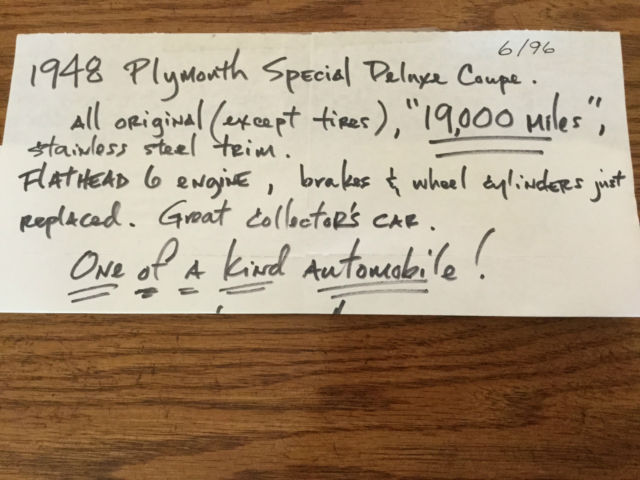 6/96
1948 Plymouth Special Deluxe Coupe.
All original (except tires), "19,000 miles",
stainless steel trim.
FLATHEAD 6 engine, brakes & wheel cylinders just
replaced. Great collector's car.
One of a kind automobile!